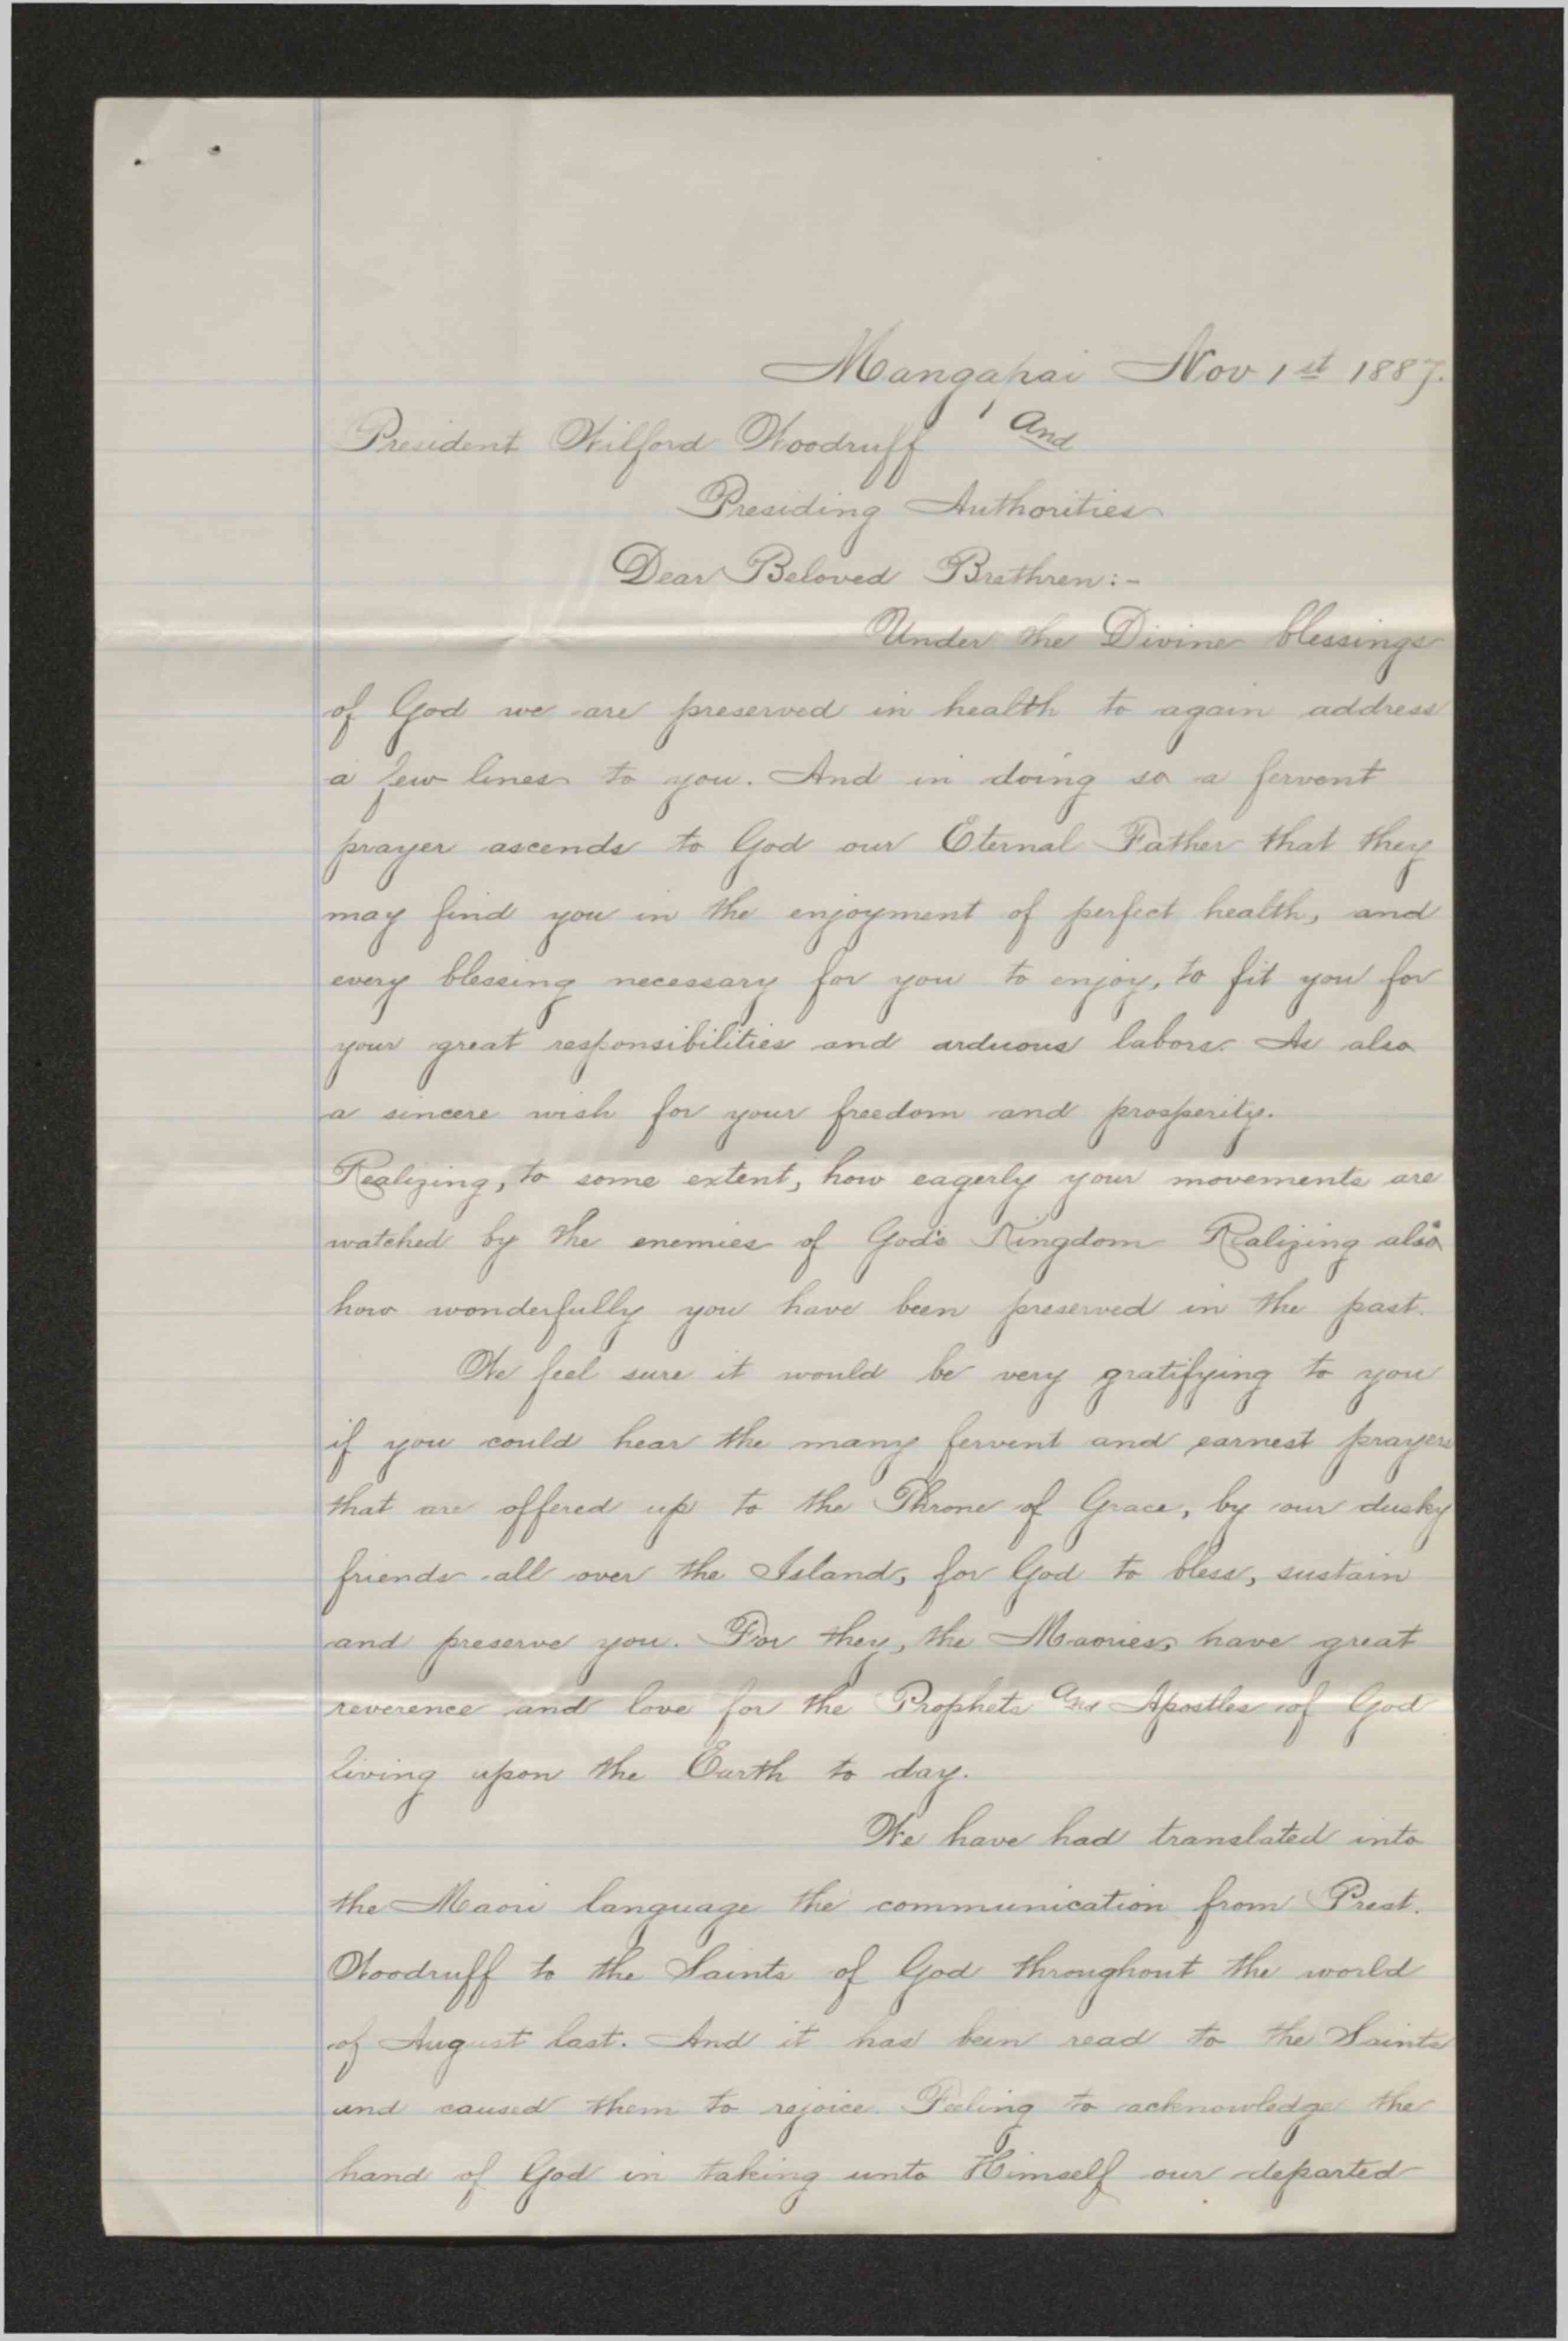 Mangapai Nov 1st 1887.
President Wilford Woodruff And
Presiding Authorities
Dear Beloved Brethren:-
Under the Divine blessings
of God we are preserved in health to again address
a few lines to you. And in doing so a fervent
prayer ascends to God our Eternal Father that they
may find you in the enjoyment of perfect health, and
every blessing necessary for you to enjoy, to fit you for
your great responsibilities and arduous labors. As also
a sincere wish for your freedom and prosperity.
Realizing, to some extent, how eagerly your movements are
watched by the enemies of God's Kingdom Realizing also
how wonderfully you have been preserved in the past.
We feel sure it would be very gratifying to you
if you could hear the many fervent and earnest prayers
that are offered up to the Throne of Grace, by our dusky
friends all over the Island, for God to bless, sustain
and preserve you. For they, the Maories, have great
reverence and love for the Prophets and Apostles of God
living upon the Earth to day.
We have had translated into
the Maori language the communication from Prest.
Woodruff to the Saints of God throughout the world
of August last. And it has been read to the Saints
and caused them to rejoice. Feeling to acknowledge the
hand of God in taking unto Himself our departed